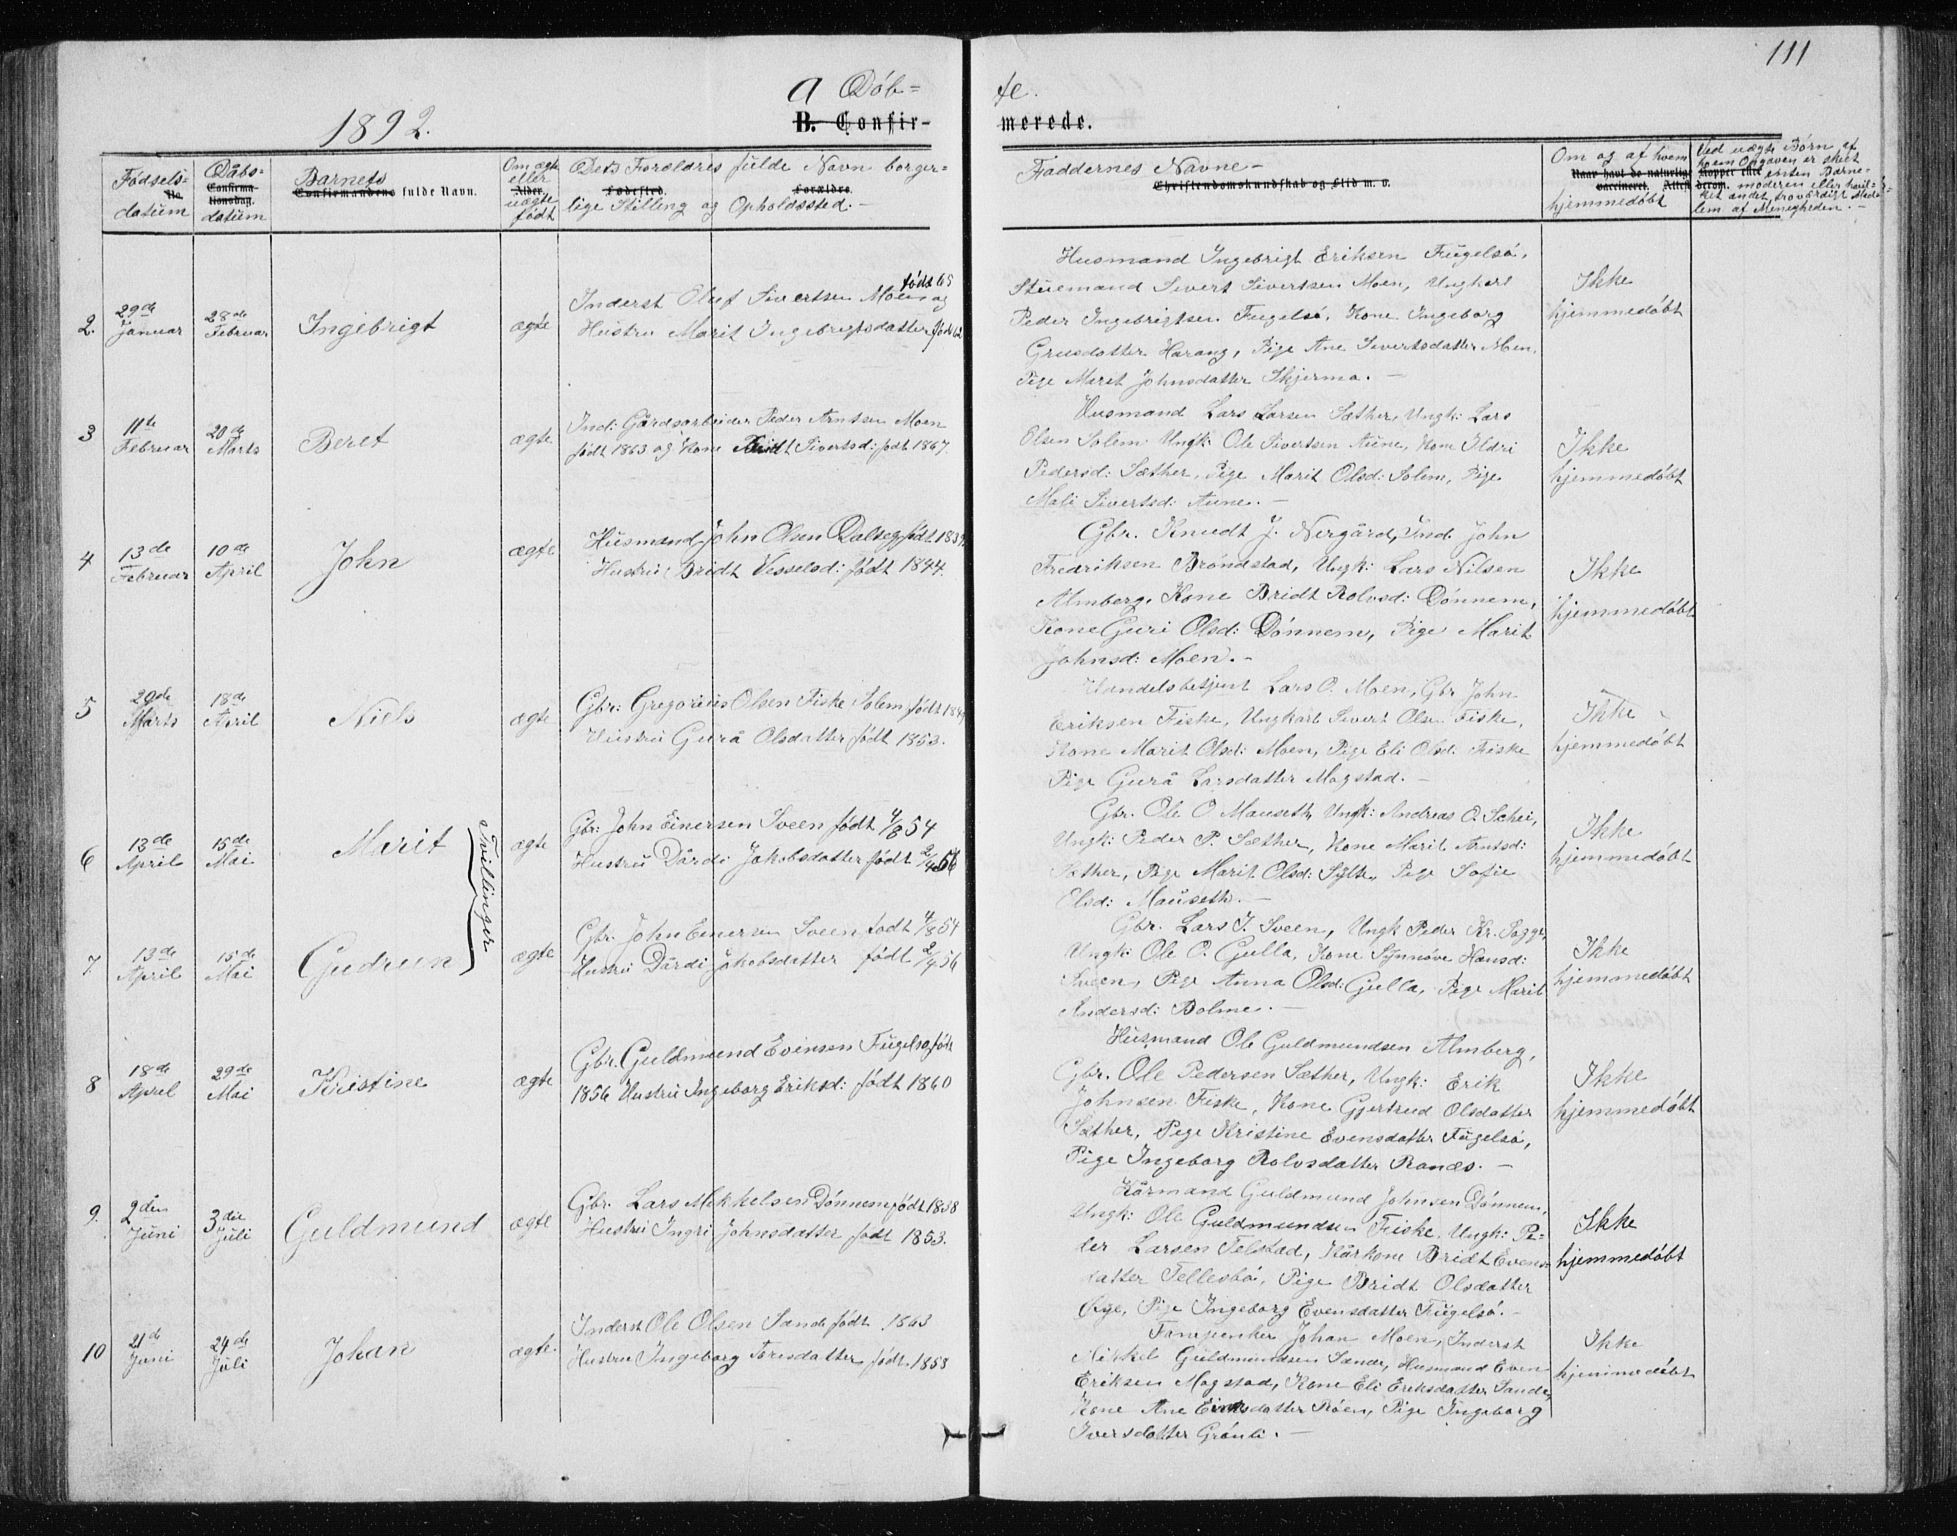 111
A Döb= te.
1892. B. Confir- merede.
Fødsels- No. datum
Daabs- Confirma- tionsdag. datum
Barnets Confirmandens fulde Navn.
Om ægte eller Alder. uægte født
Dets Forældres fulde Navn borger-
Fødested. Forældre.
lige Stilling og Opholdssted.-
Faddernes Navne-
Christendomskundskab og Flid m. v.
Om og af hvem
Naar havt de naturlige Kopper eller
vaccineret. Attest derom.
hjemmedöbt
Ved uægte Börn, af
hvem Opgaven er skeet
enten Barne-
moderen eller
ket andet, troværdigt Med-
lem af Menigheden.-
2. 29de Januar
28de Februar
Ingebrigt
ægte
Inderst Oluf Sivertsen Moen født 65 og
Hustru Marit Ingebrigtsdatter født 62
Husmand Ingebrigt Eriksen Fugelsö,
Stuemand Sivert Sivertsen Moen, Ungkarl
Peder Ingebrigtsen Fugelsö, Kone Ingeborg
Grusdatter Harang, Pige Ane Sivertsdatter Moen,
Pige Marit Johnsdatter Skjerma.-
Ikke
hjemmedöbt
3 11te Februar
20de Marts
Beret
ægte
Ind: Gårdsarbeider Peder Arntsen Moen
født 1863 og Kone Bridt Sivertsd: født 1867.
Husmand Lars Larsen Sæther, Ungk: Lars
Olsen Solem Ungk: Ole Sivertsen Aune, Kone Ildri
Pedersd: Sæther, Pige Marit Olsd: Solem, Pige
Mali Sivertsd: Aune.-
Ikke
hjemmedöbt
4 13de Februar
10de April
John
ægte
Husmand John Olsen Dalseg født 1839.
Hustru Bridt Vesselsd: født 1844.
Gbr. Knudt J. Nergård, Ind. John
Fredriksen Bröndstad, Ungk: Lars Nilsen
Almberg, Kone Bridt Rolvsd: Dönnem,
Kone Guri Olsd: Dönnem, Pige Marit
Johnsd: Moen.-
Ikke
hjemmedöbt
5 29de Marts
18de April
Niels
ægte
Gbr: Gregorius Olsen Fiske Solem født
Hustru Gurå Olsdatter født 1853.
Handelsbetjent Lars O. Moen, Gbr John
Eriksen Fiske, Ungkarl Sivert Olsen Fiske,
Kone Marit Olsd: Moen, Pige Eli Olsd: Fiske
Pige Gurå Larsdatter Magstad.-
Ikke
hjemmedöbt
6 13de April
15de Mai
Marit
Tvillinger
ægte
Gbr: John Einersen Sveen født 4/8 54
Hustru Dårdi Jakobsdatter født 2/4 56
Gbr. Ole O Mauseth, Ungk: Andreas O. Schei,
Ungk: Peder P. Sæther, Kone Marit Arntsd:
Sæther, Pige Marit Olsd: Sylte, Pige Sofie
Elsd: Mauseth.-
Ikke
hjemmedöbt
7 13de April
15de Mai
Gudrun
ægte
Gbr. John Einersen Sveen født 4/8 54
Hustru Dårdi Jakobsdatter født 2/4 56
Gbr. Lars J. Sveen, Ungk Peder Kr.
Ungk: Ole O. Gulla, Kone Synnöve Hansd:
Sveen, Pige Anna Olsd: Gulla, Pige Marit
Andersd: Bolme.-
Ikke
hjemmedöbt
8 18de April
29de Mai
Kristine
ægte
Gbr. Guldmund Evensen Fugelsö, født
1856 Hustru Ingeborg Eriksd: født 1860
Husmand Ole Guldmundsen Almberg,
Gbr. Ole Pedersen Sæther, Ungk: Erik
Johnsen Fiske, Kone Gjertrud Olsdatter
Sæther, Pige Kristine Evensdatter Fugelsö,
Pige Ingeborg Rolvsdatter Ranæs.-
Ikke
hjemmedöbt
9. 2den Juni
3die Juli
Guldmund
ægte
Gbr. Lars Mikkelsen Dönnem født 1858
Hustru Ingri Johnsdatter født 1853.
Kårmand Guldmund Johnsen Dönnem,
Ungk: Ole Guldmundsen Fiske, Ungk: Pe-
der Larsen Telstad, Kårkone Bridt Evens-
datter Tellesbö, Pige Bridt Olsdatter
Öye, Pige Ingeborg Evensdatter Fugelsö.-
Ikke
hjemmedöbt
10 21de Juni
24de Juli
Johan
ægte
Inderst Ole Olsen Sande født 1863
Hustru Ingeborg Toresdatter født 1858
Fanejunker Johan Moen, Inderst
Mikkel Guldmundsen Sande, Husmand Even
Eriksen Magstad, Kone Eli Eriksdatter Sande,
Kone Ane Eriksdatter Röen, Pige Ingeborg
Iversdatter Grönli.-
Ikke
hjemmedöbt